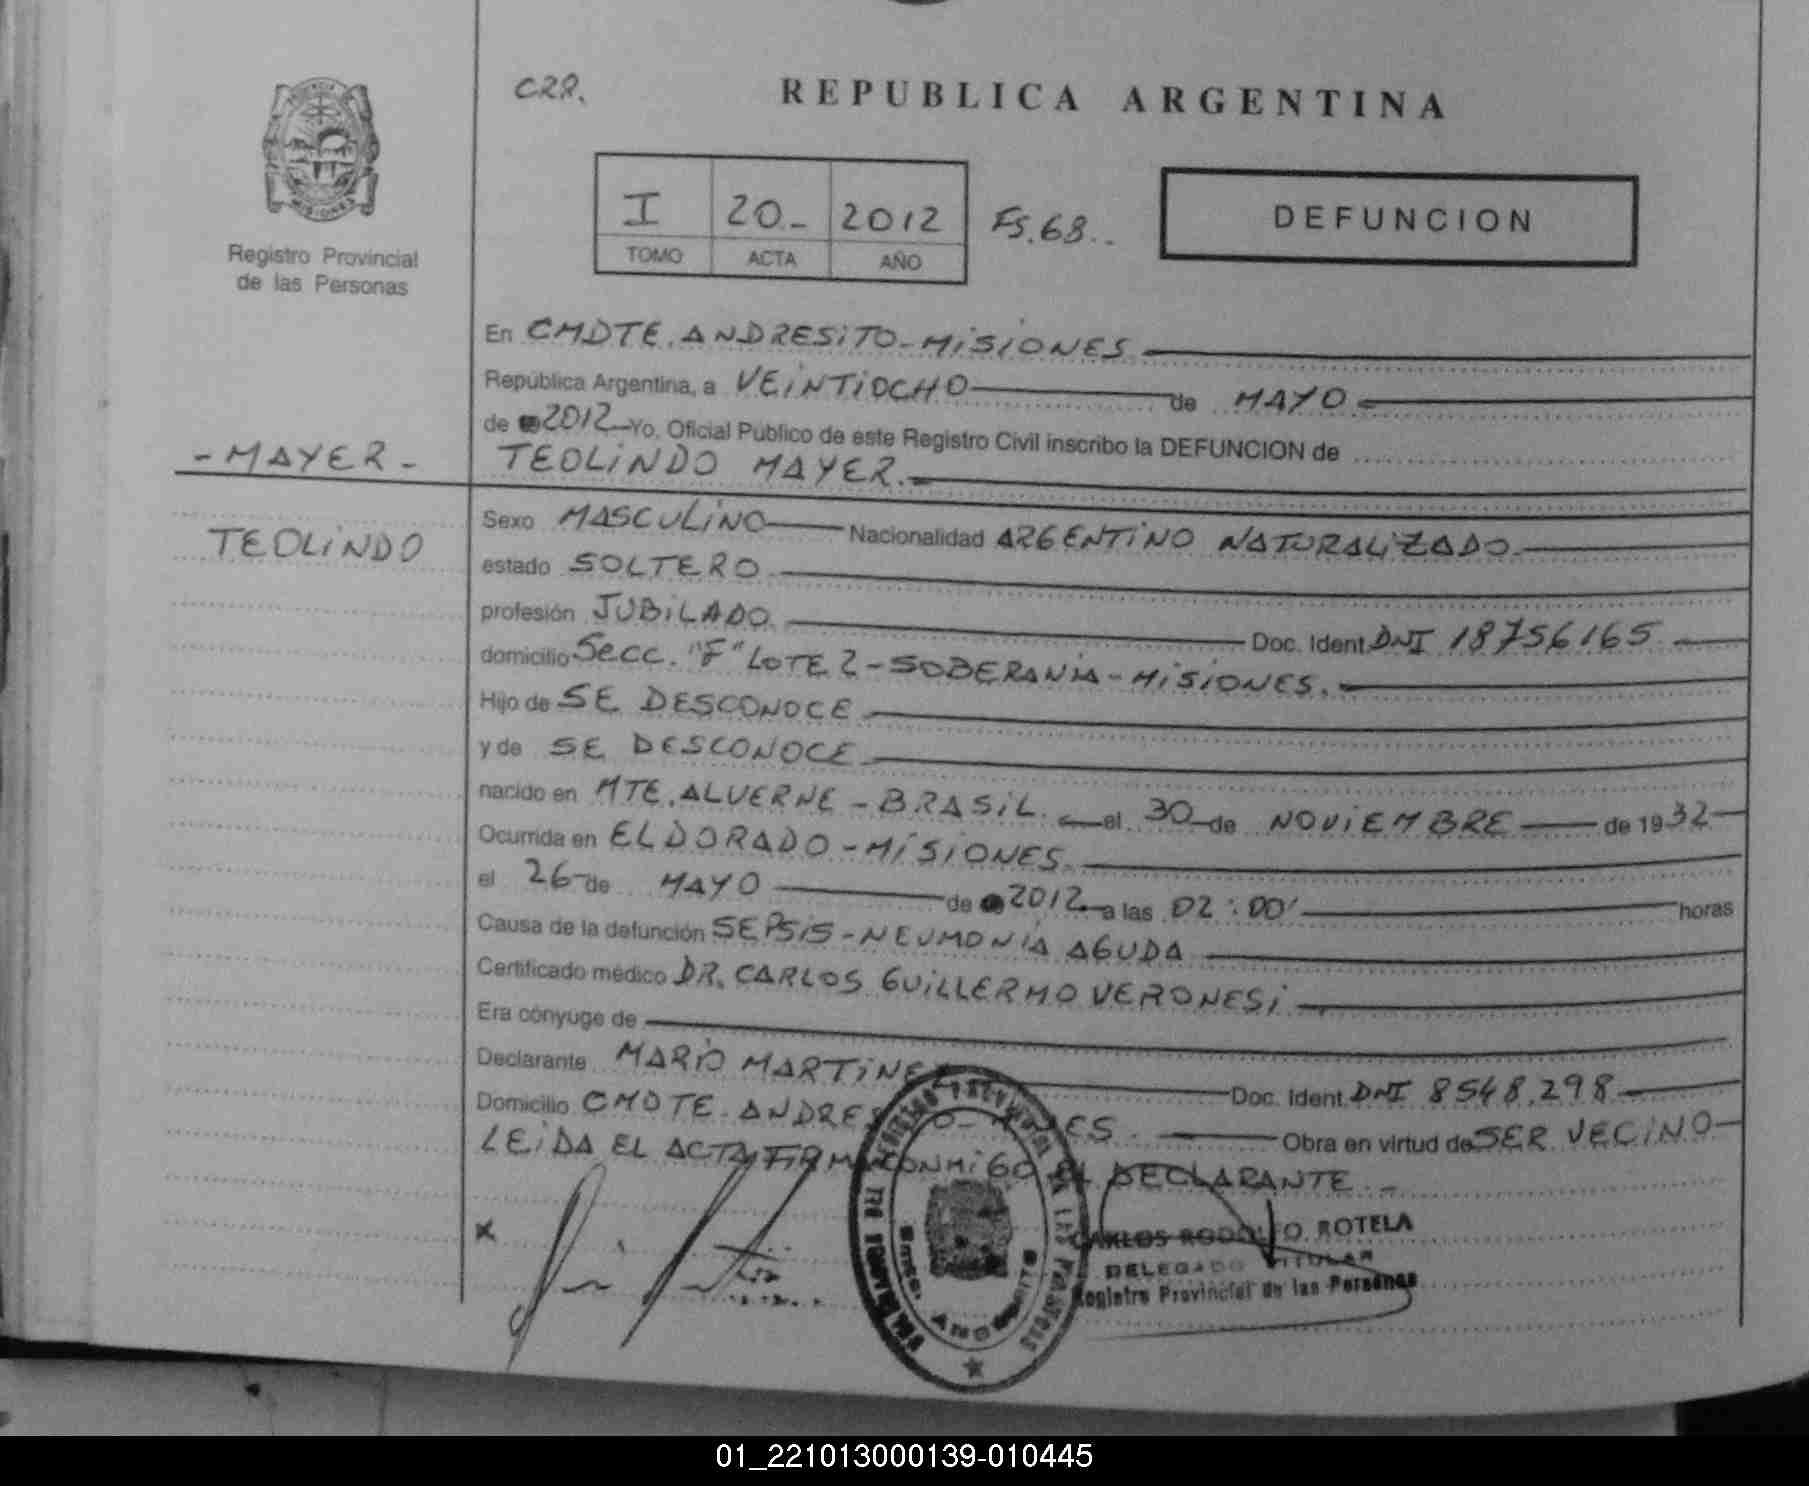 CRR.
REPUBLICA ARGENTINA
MISIONES
Registro Provincial
de las Personas
I 20.- 2012 Fs.68..
TOMO ACTA AÑO
DEFUNCION
En CMDTE. ANDRESITO - MISIONES
República Argentina, a VEINTIOCHO de MAYO
de 2012 Yo, Oficial Público de este Registro Civil inscribo la DEFUNCION de
- MAYER - TEOLINDO MAYER.
TEOLINDO
Sexo MASCULINO Nacionalidad ARGENTINO NATURALIZADO
estado SOLTERO
profesión JUBILADO. Doc. Ident. DNI 18756165
domicilio Secc. "F" LOTE 2 - SOBERANIA - MISIONES.
Hijo de SE DESCONOCE
y de SE DESCONOCE
nacido en MTE. ALVERNE - BRASIL. el 30 de NOVIEMBRE de 1932
Ocurrida en ELDORADO - MISIONES.
el 26 de MAYO de 2012 a las 02:00' horas
Causa de la defunción SEPSIS - NEUMONIA AGUDA
Certificado médico DR. CARLOS GUILLERMO VERONESI
Era cónyuge de
Declarante MARIO MARTINEZ Doc. Ident. DNI 8548.298
Domicilio CMDTE. ANDRESITO - Obra en virtud de SER VECINO
LEIDA EL ACTA FIRMA CONMIGO EL DECLARANTE.-
x
CARLOS RODOLFO ROTELA
DELEGADO TITULAR
Registro Provincial de las Personas
01_221013000139-010445